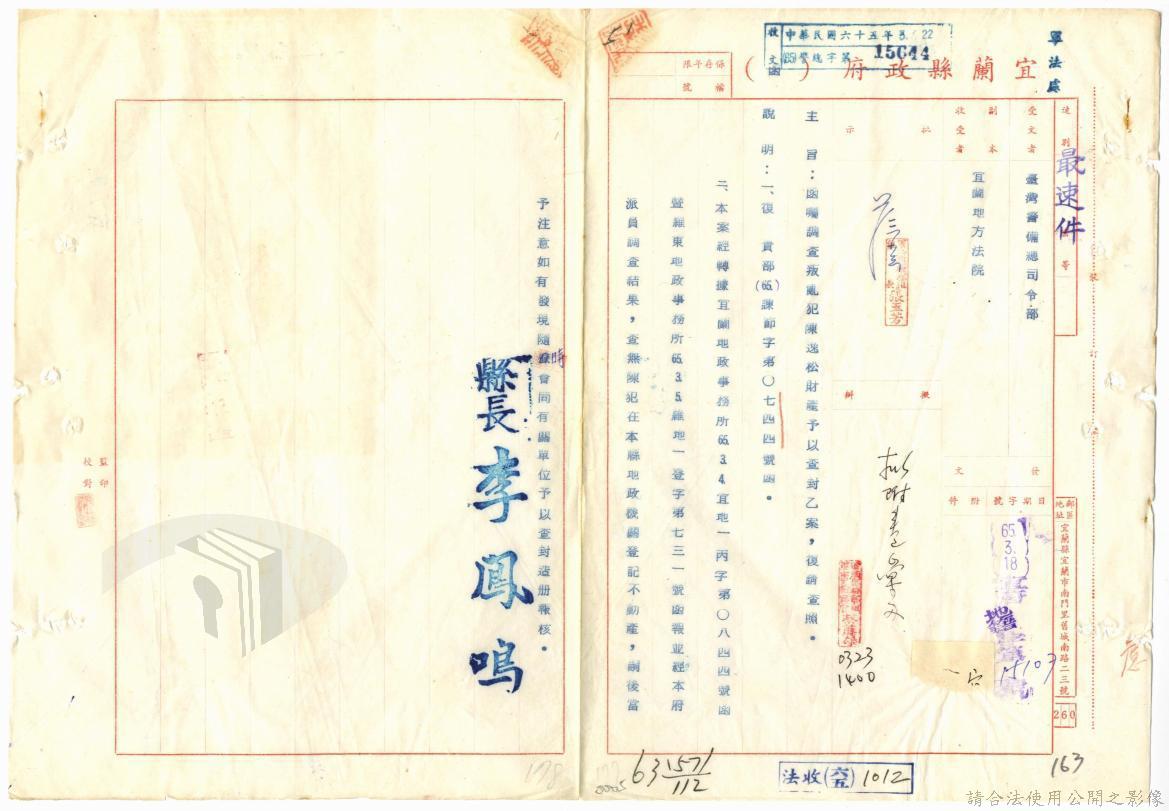 軍法處
宜蘭縣政府（　）函
保存年限
檔號
收文
中華民國六十五年3.22
(65)警總字第15644
速別
最速件
等
受文者
臺灣警備總司令部
副本
收受者
宜蘭地方法院
批示
擬辦
發文
日期字號附件
65.3.18
15107
郵區
地址
宜蘭縣宜蘭市南門里舊城南路二三號
260
裝
訂
主旨：函囑調查叛亂犯陳逸松財產予以查封乙案，復請查照。
說明：一、復　貴部(65.)諫節字第〇七四四號函。
二、本案經轉據宜蘭地政事務所65.3.4.宜地一丙字第〇八四四號函
暨羅東地政事務所65.3.5.羅地一登字第七三一號函報並經本府
派員調查結果，查無陳犯在本縣地政機關登記不動產，嗣後當
0323
1400
予注意如有發現隨時會同有關單位予以查封造册報核。
縣長李鳳鳴
監印
校對
631571/112
法收(六五)1012
163
178
請合法使用公開之影像